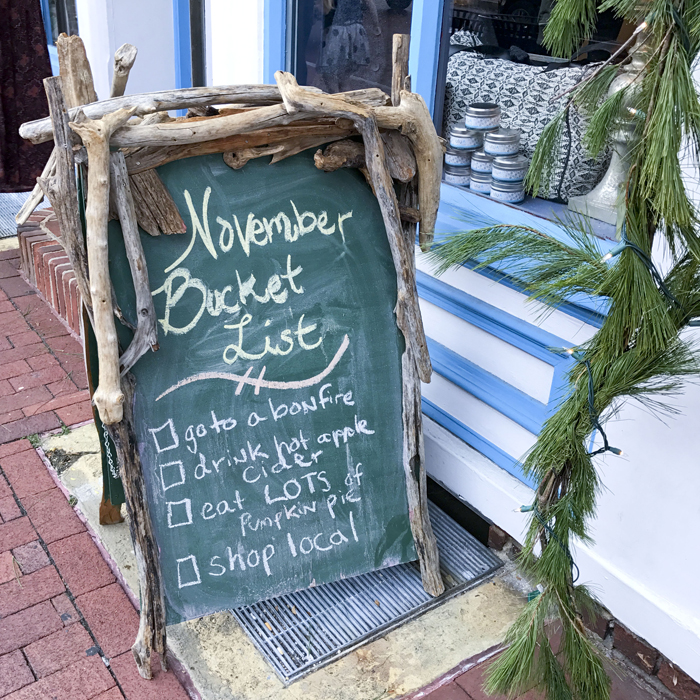 November
Bucket
List
go to a bonfire
drink hot apple
cider
eat LOTS of
Pumpkin pie
shop local